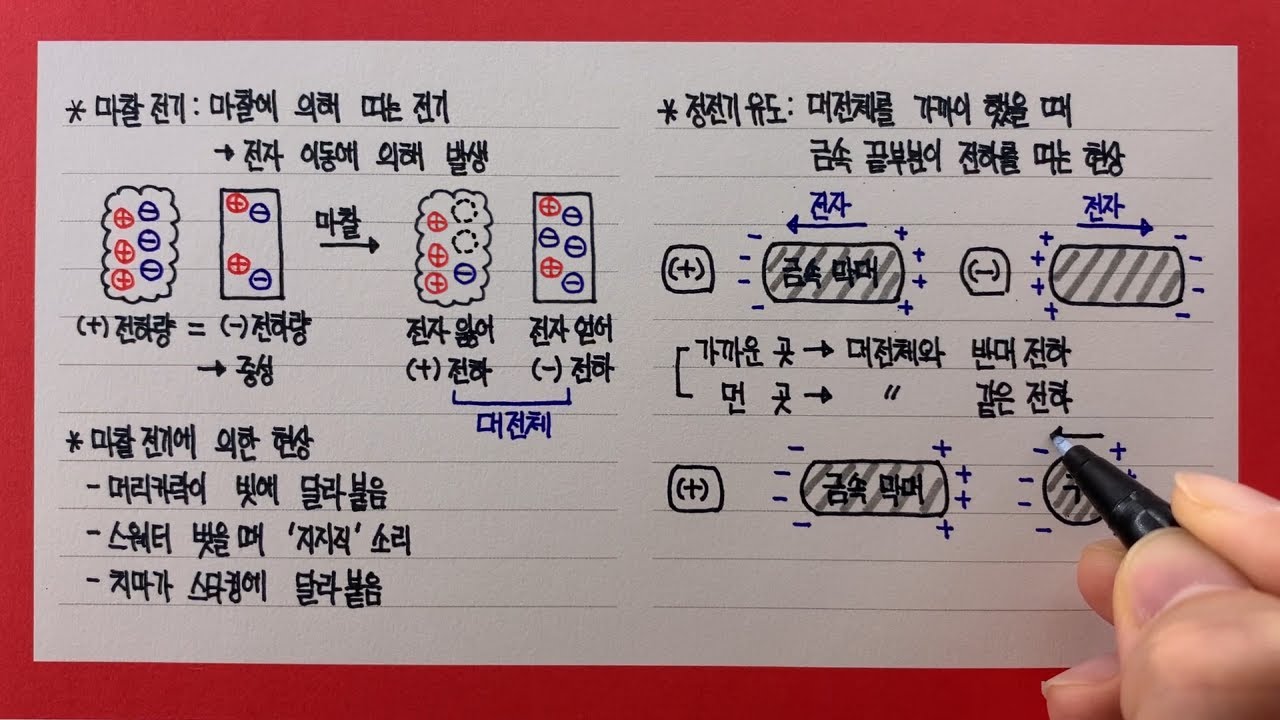 * 마찰 전기 : 마찰에 의해 띠는 전기
→ 전자 이동에 의해 발생
⊕ ⊖ ⊕ ⊖ 마찰 ⊕ ⊕ ⊖
⊕ ⊖ ⊕ ⊖ ⊖ ⊖
⊕ ⊖ ⊕ ⊖ ⊕ ⊖ ⊕ ⊖
(+) 전하량 = (-) 전하량
→ 중성
전자 잃어 전자 얻어
(+) 전하 (-) 전하
대전체
* 마찰 전기에 의한 현상
- 머리카락이 빗에 달라 붙음
- 스웨터 벗을 때 '지지직' 소리
- 치마가 스타킹에 달라 붙음
* 정전기 유도 : 대전체를 가까이 했을 때
금속 끝부분이 전하를 띠는 현상
전자 전자
(+) - - - - 금속 막대 + + + + (-) + + + + - - - -
가까운 곳 → 대전체와 반대 전하
먼 곳 → 〃 같은 전하
(+) - - - - 금속 막대 + + + + - - - - +